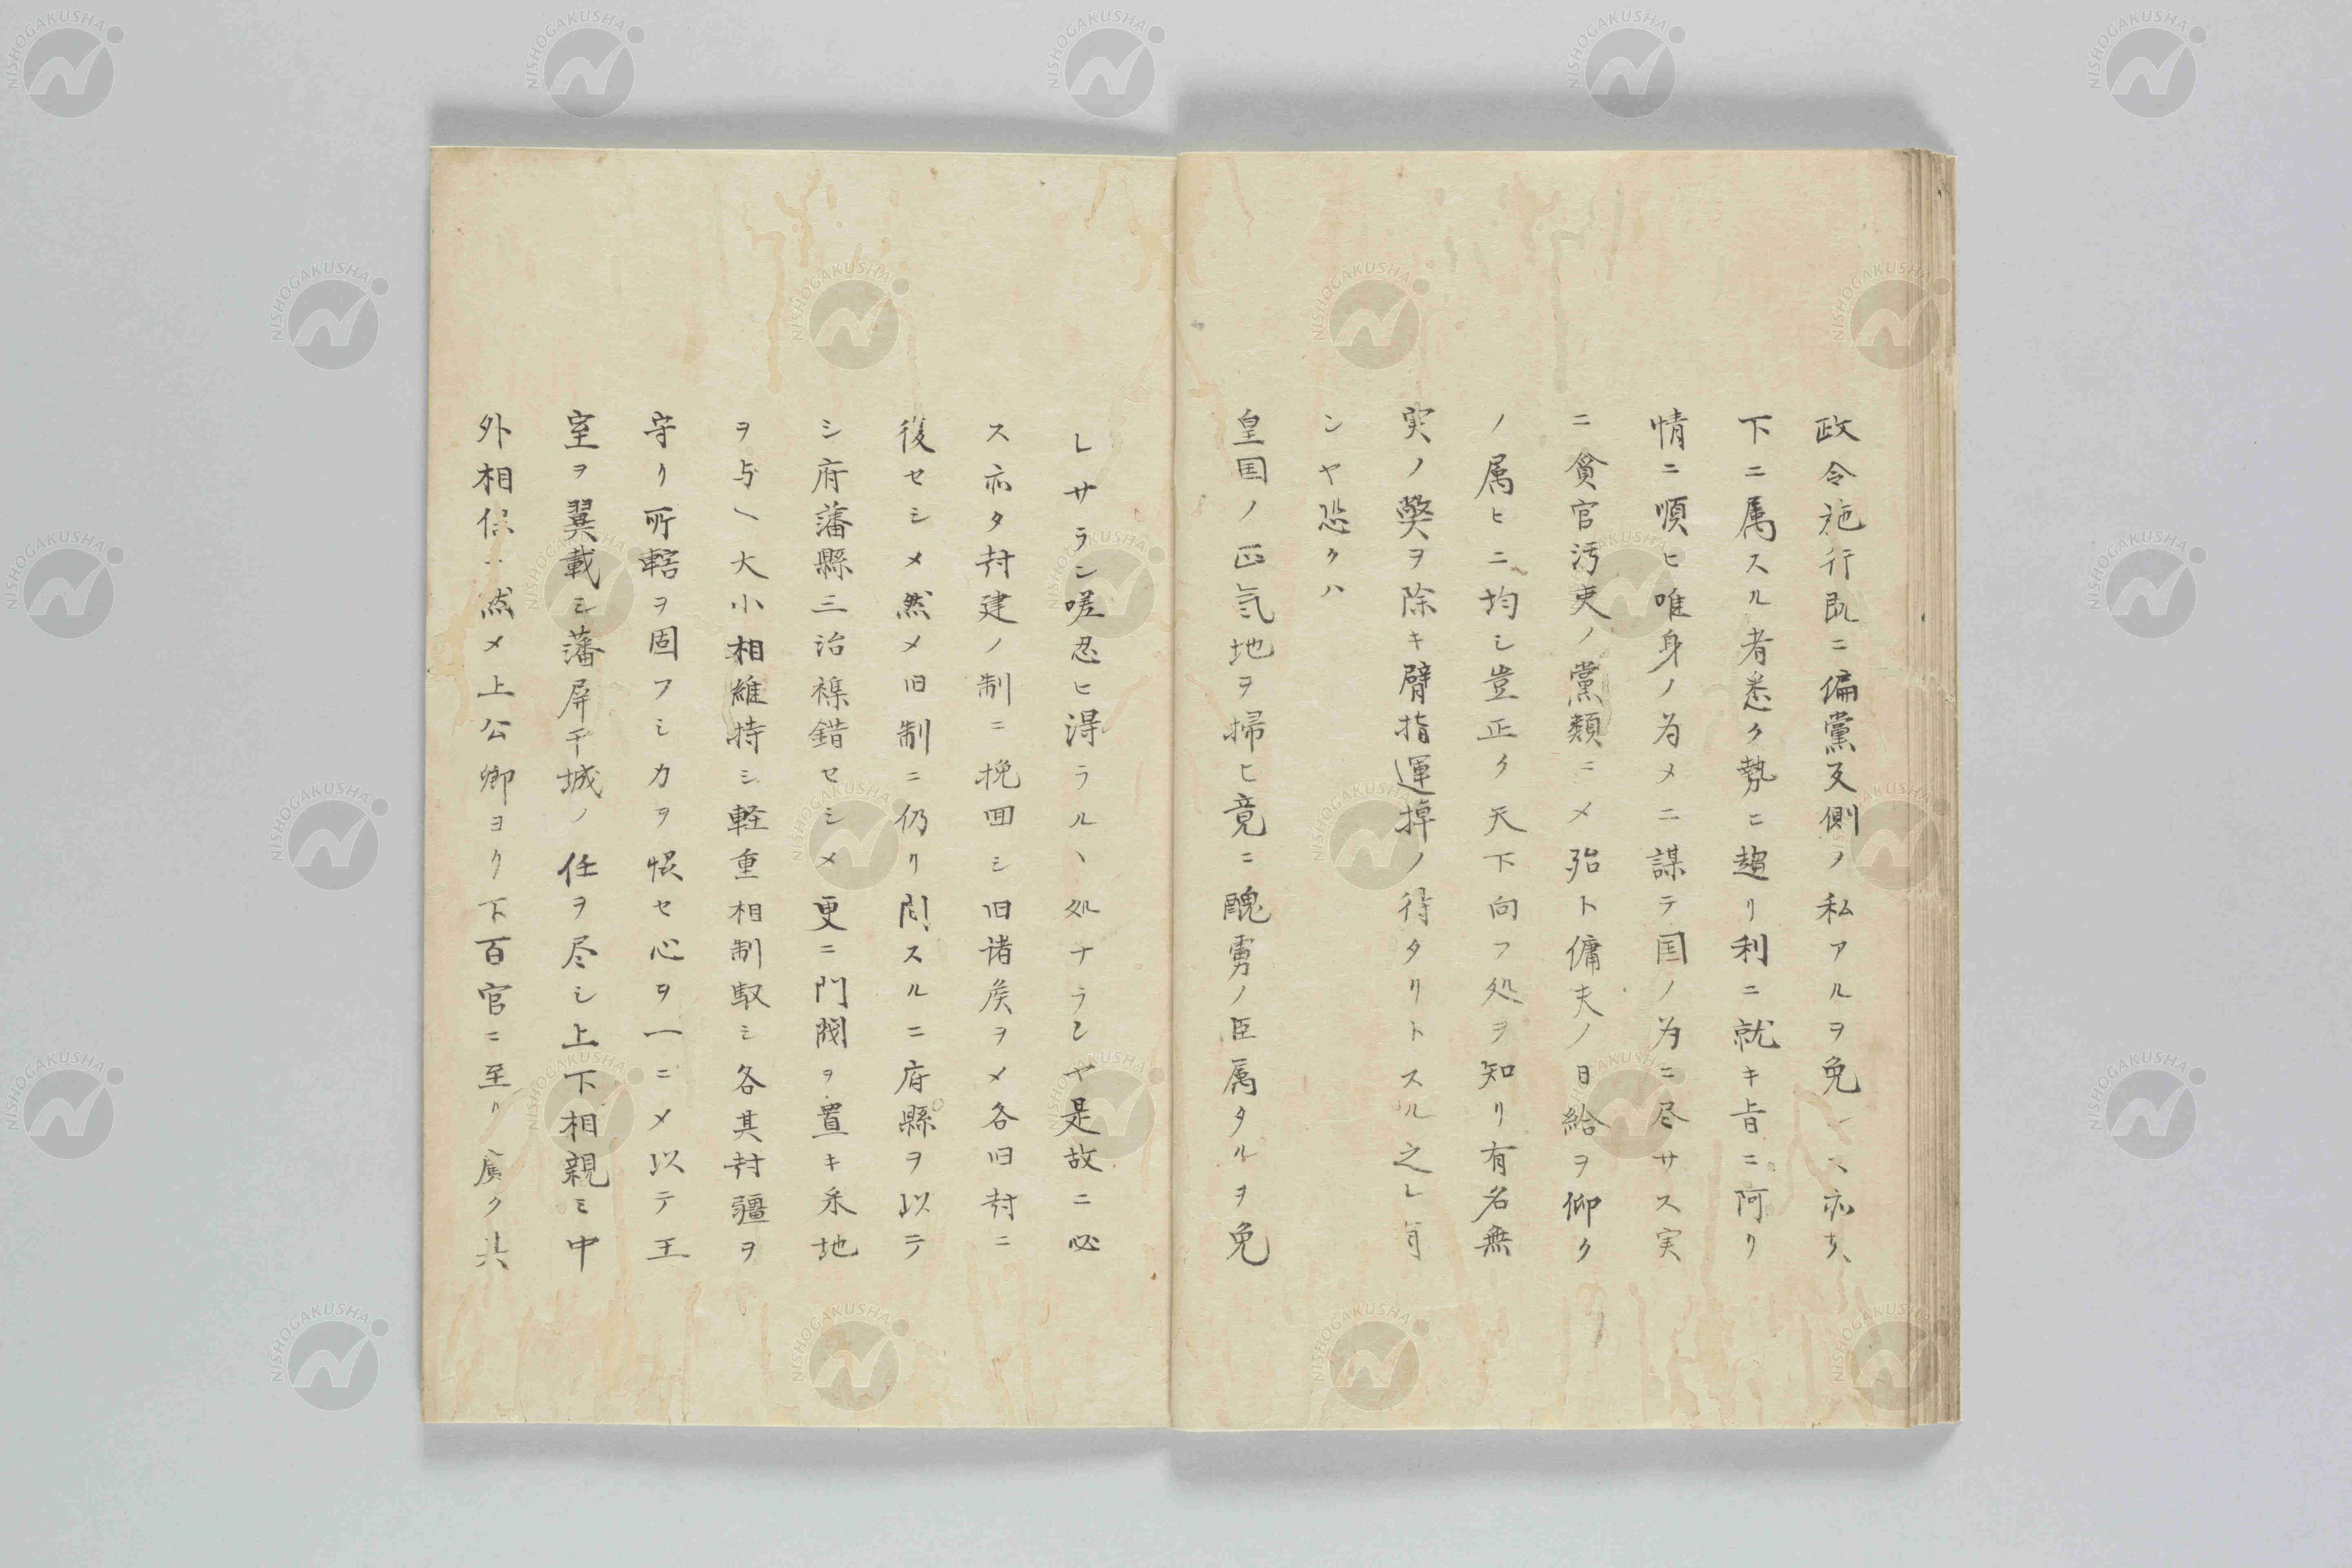 政令施行既ニ偏黨反側ノ私アルヲ免亦
下ニ属スル者悉ク勢ニ趨リ利ニ就キ旨ニ阿リ
情ニ順ヒ唯身ノ為メニ謀テ国ノ為ニ尽サス実
ニ貪官汚吏ノ黨類ニメ殆ト傭夫ノ日給ヲ仰ク
ノ属ヒニ均シ豈正ク天下向フ処ヲ知リ有名無
実ノ獘ヲ除キ臂指運掉ノ得タリトスル之レ有
ンヤ恐クハ
皇国ノ正気地ヲ掃ヒ竟ニ醜虜ノ臣属タルヲ免
レサラン嗟忍ヒ得ラルヽ処ナランヤ是故ニ必
ス亦タ封建ノ制ニ挽回シ旧諸侯ヲメ各旧封ニ
復セシメ然メ旧制ニ仍リ間スルニ府縣ヲ以テ
シ府藩縣三治襍錯セシメ更ニ門閥ヲ置キ釆地
ヲ与ヘ大小相維持シ軽重相制馭シ各其封疆ヲ
守リ所轄ヲ固フシ力ヲ悞セ心ヲ一ニメ以テ王
室ヲ翼載シ藩屏干城ノ任ヲ尽シ上下相親ミ中
外相保ニ然メ上公卿ヨリ下百官ニ至リ廣ク共
NISHOGAKUSHA